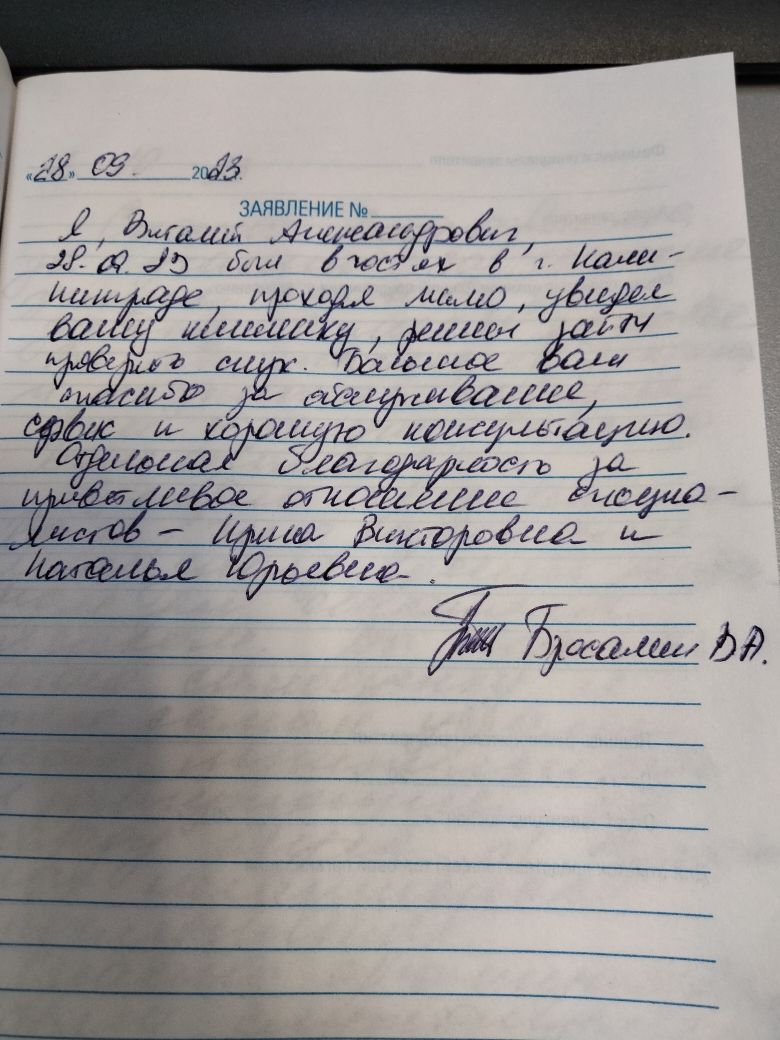 «28» 09. 2023.
ЗАЯВЛЕНИЕ №
Я, Виталий Александрович,
28.09.23 был в гостях в г. Кали-
нинграде, проходя мимо, увидел
вашу клинику, решил зайти
проверить слух. Большое вам
спасибо за обслуживание,
сервис и хорошую консультацию.
Отдельная благодарность за
приветливое отношение специа-
листов – Ирина Викторовна и
Наталья Юрьевна.
В.А.